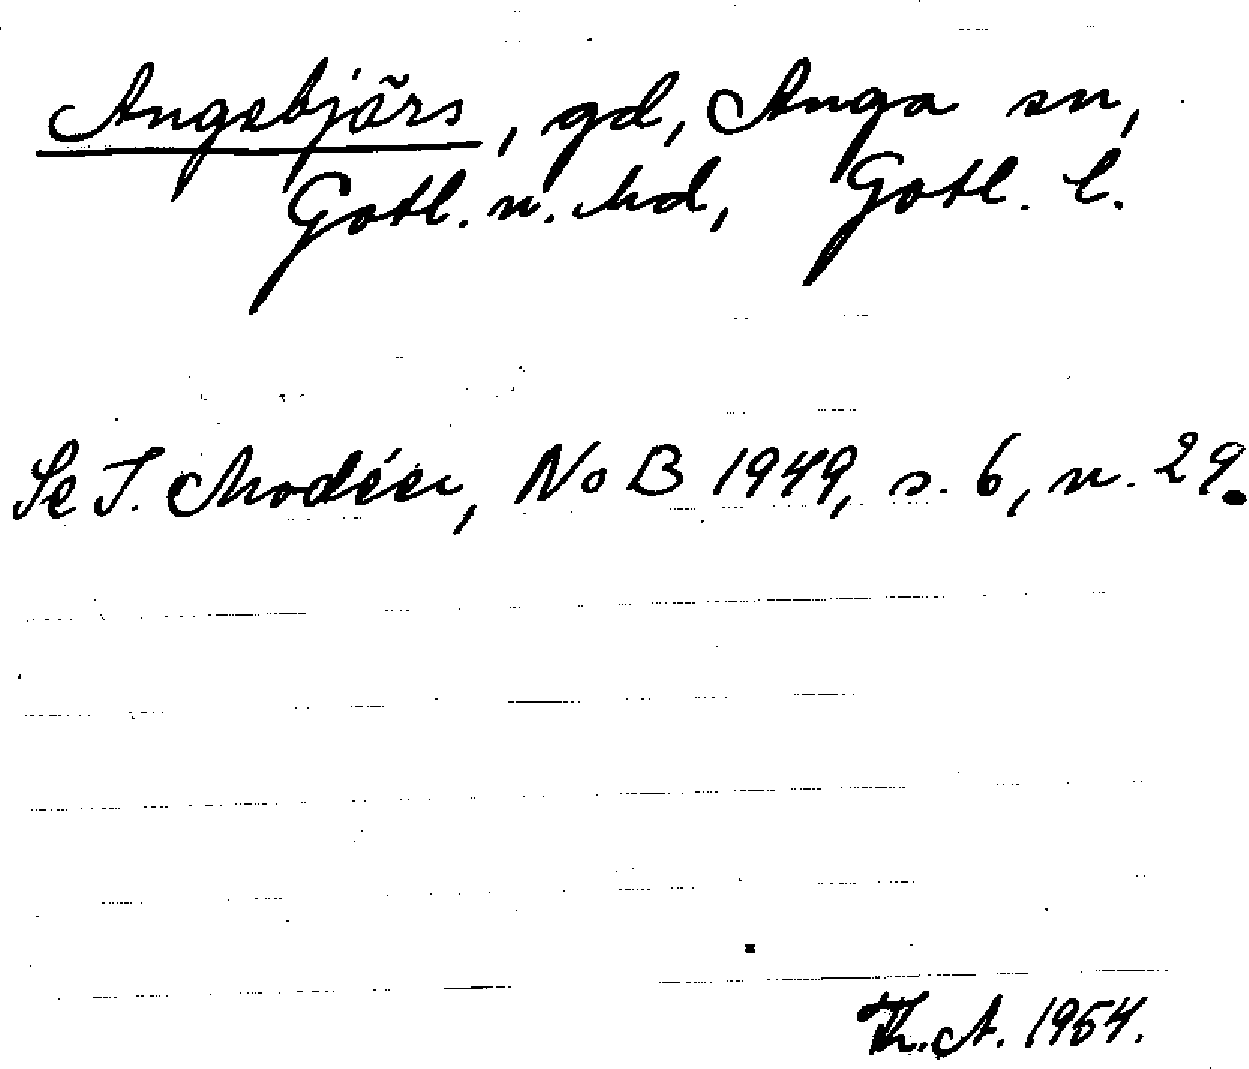 Angsbjärs, gd, Anga sn,
Gotl. n. hd, Gotl. l.
Se I. Modéer, NoB 1949, s. 6, n. 29.
Th. A. 1954.